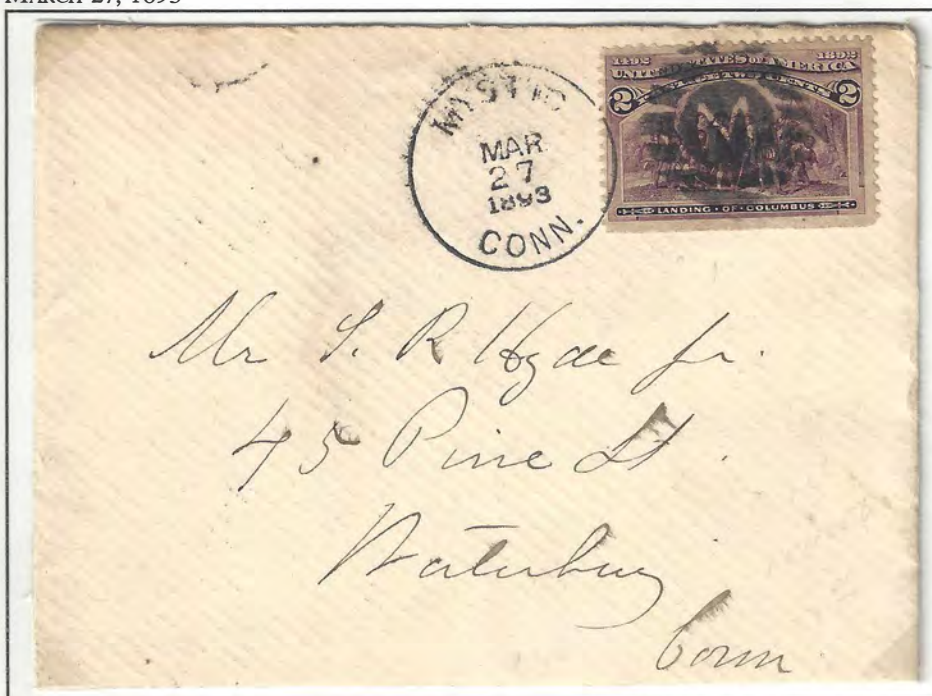 MARCH 27, 1893
MYSTIC
MAR
27
1893
CONN.
1492 1892
UNITED STATES OF AMERICA
POSTAGE TWO CENTS
2 2
M
LANDING · OF · COLUMBUS
Mr S. R Hyde Jr.
45 Pine St.
Waterbury
Conn